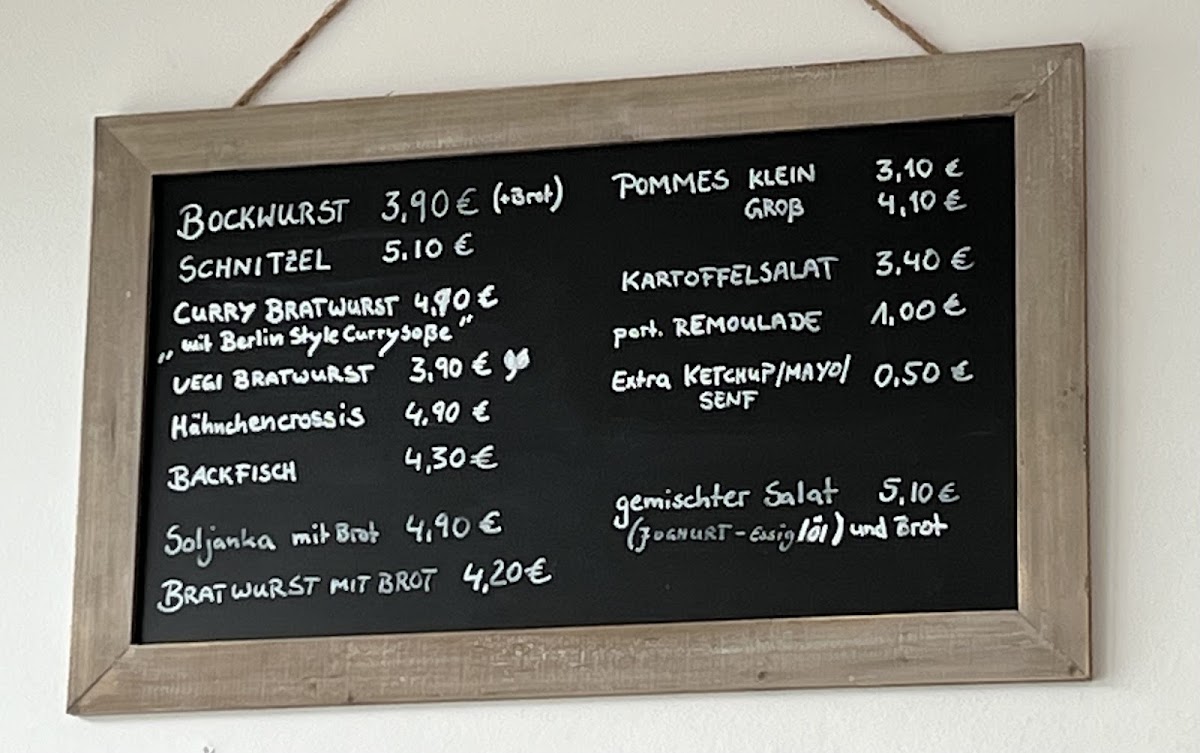 BOCKWURST 3,90 € (+Brot)
SCHNITZEL 5.10 €
CURRY BRATWURST 4,90 €
„mit Berlin Style Currysoße"
VEGI BRATWURST 3,90 €
Hähnchencrossis 4,90 €
BACKFISCH 4,30 €
Soljanka mit Brot 4,90 €
BRATWURST MIT BROT 4,20 €
POMMES KLEIN 3,10 €
GROß 4,10 €
KARTOFFELSALAT 3.40 €
port. REMOULADE 1,00 €
Extra KETCHUP/MAYO/ 0,50 €
SENF
gemischter Salat 5,10 €
(JOGHURT-Essig/öl) und Brot